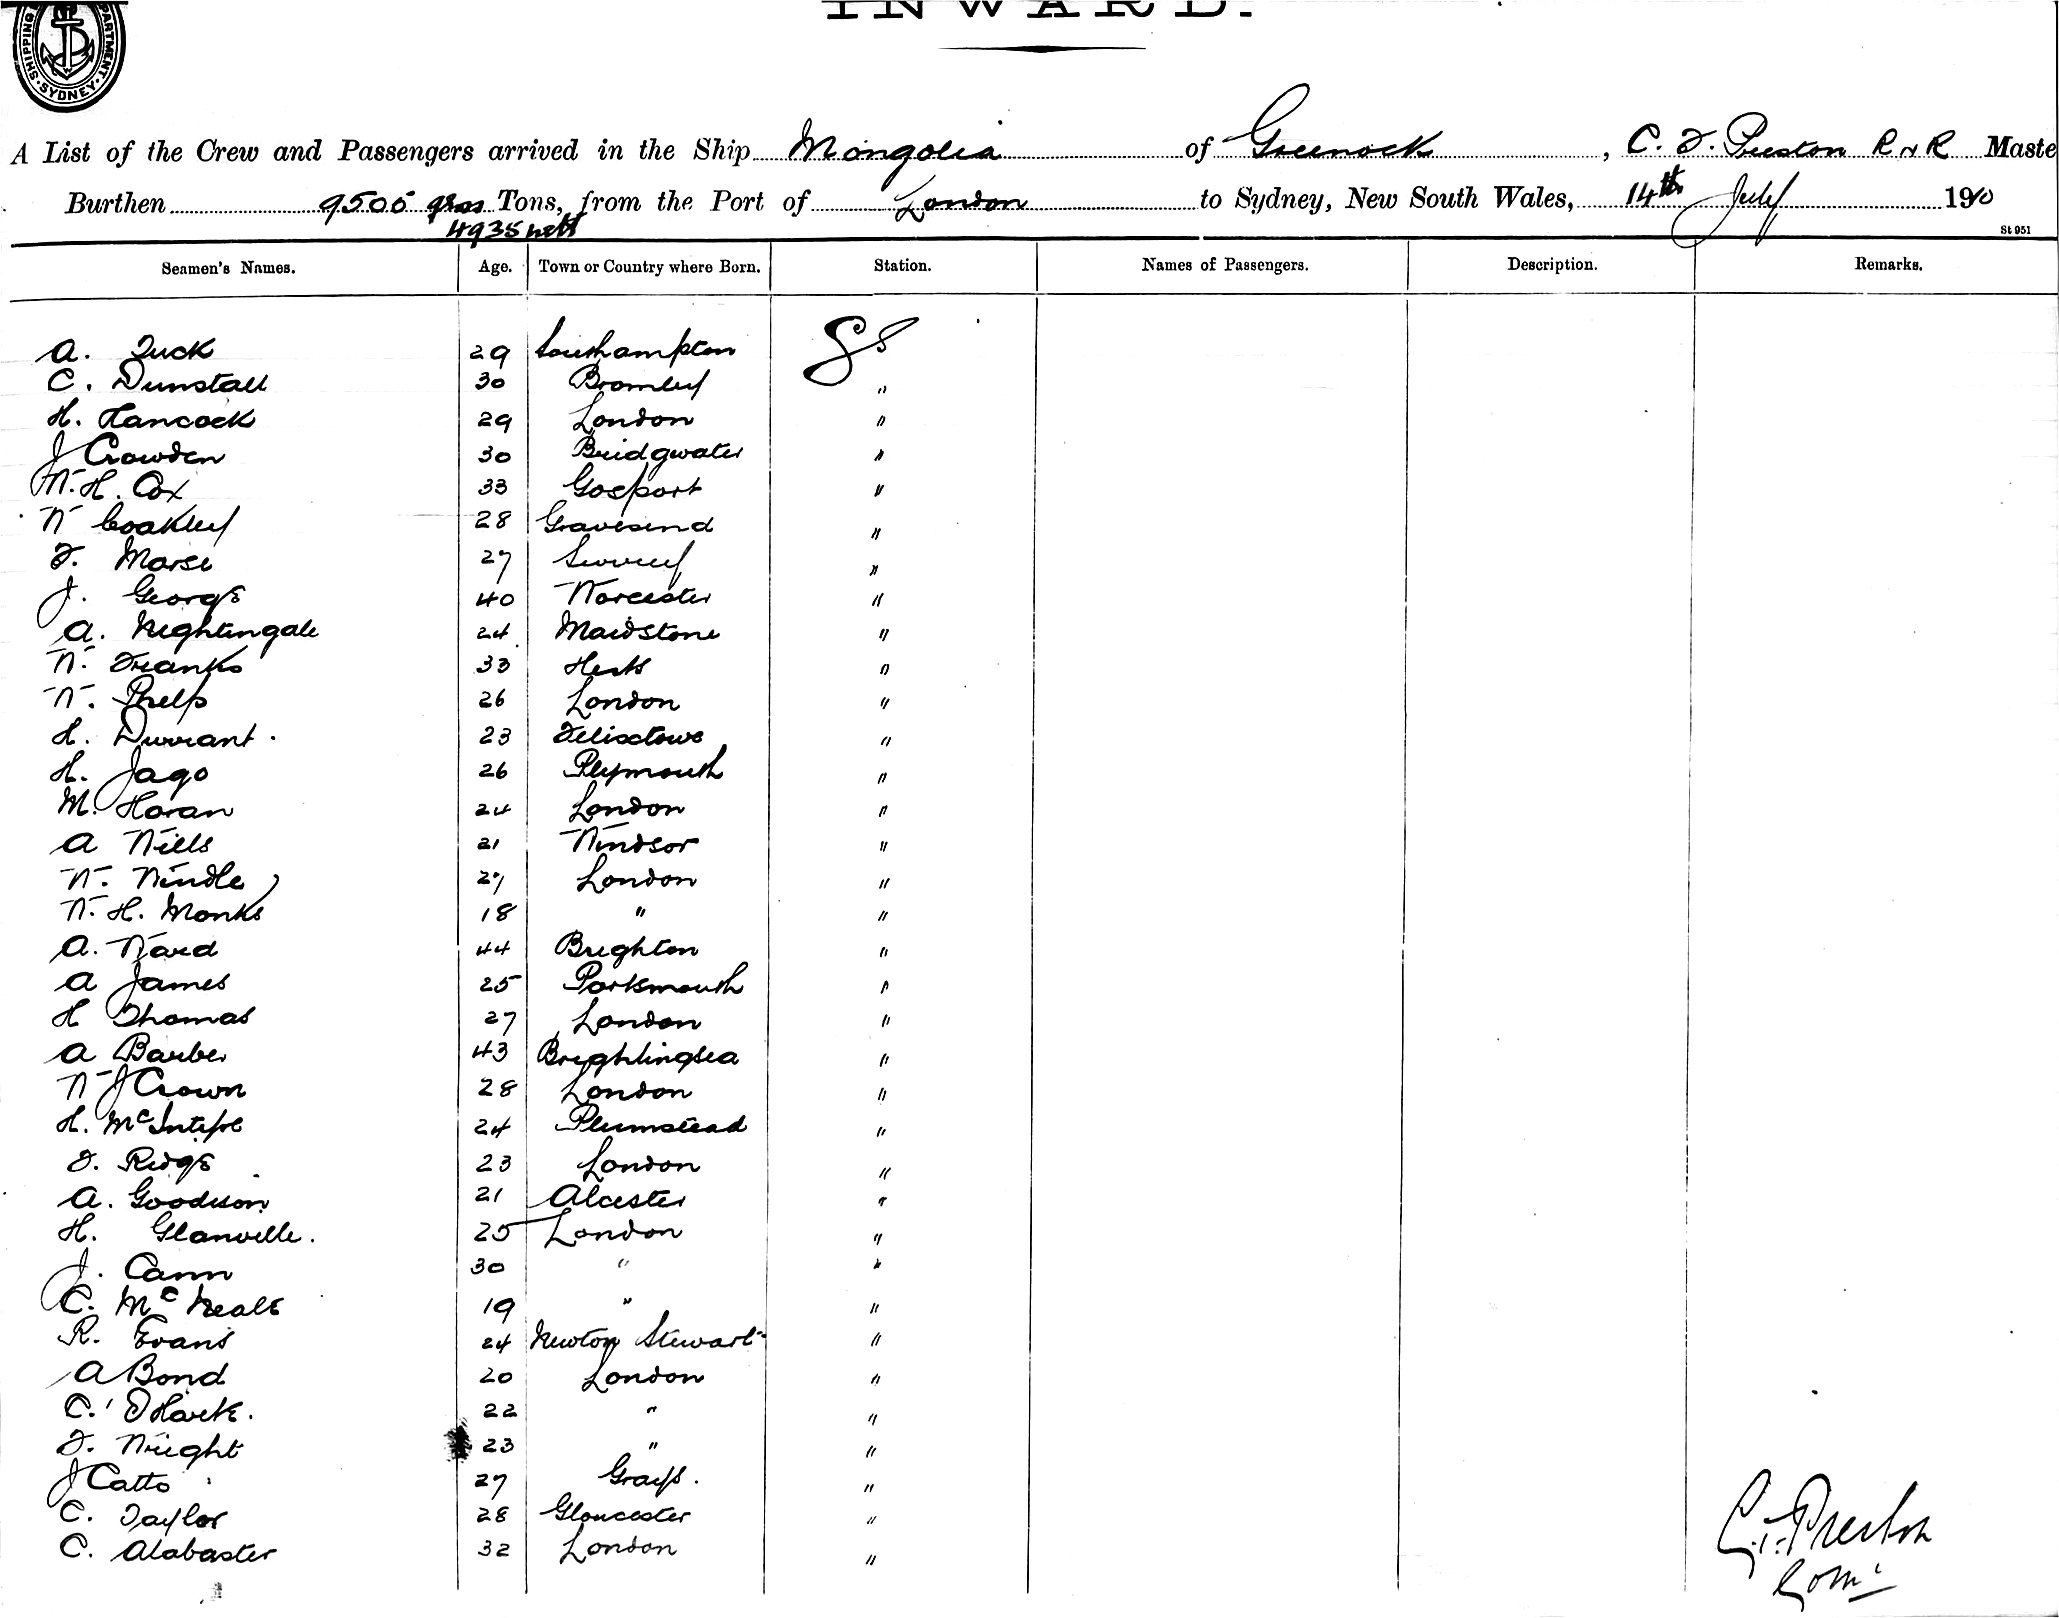 SHIPPING DEPARTMENT. SYDNEY.
INWARD.
A List of the Crew and Passengers arrived in the Ship Mongolia of Greenock, C. F. Preston R N R Maste
Burthen 9505 gross Tons, from the Port of London to Sydney, New South Wales, 14th July 1910
4935 nett
St 951
Seamen's Names. Age. Town or Country where Born. Station. Names of Passengers. Description. Remarks.
A. Tuck 29 Southampton GS
C. Dunstall 30 Bromley "
H. Hancock 29 London "
J Crowden 30 Bridgwater "
W. H. Cox 33 Gosport "
W Coakley 28 Gravesend "
F. Morse 27 Surrey "
J. George 40 Worcester "
A. Nightingale 24 Maidstone "
W. Franks 33 Herts "
W. Phelp 26 London "
H. Durrant. 23 Felixtowe "
H. Jago 26 Plymouth "
M. Horan 24 London "
A Wills 21 Windsor "
W. Windle 27 London "
W. H. Monks 18 " "
A. Ward 44 Brighton "
A James 25 Portsmouth "
H Thomas 27 London "
A Barber 43 Brightlingsea "
W J Crown 28 London "
H. McIntyre 24 Plumstead "
F. Ridge 23 London "
A. Goodison 21 Alcester "
H. Glanville. 25 London "
J. Cann 30 " "
C. Mc Neale 19 " "
R. Evans 24 Newton Stewart "
A Bond 20 London "
C. 22 " "
F. Wright 23 " "
J Catto 27 Grays. "
C. Taylor 28 Gloucester "
C. Alabaster 32 London "
C. F. Preston